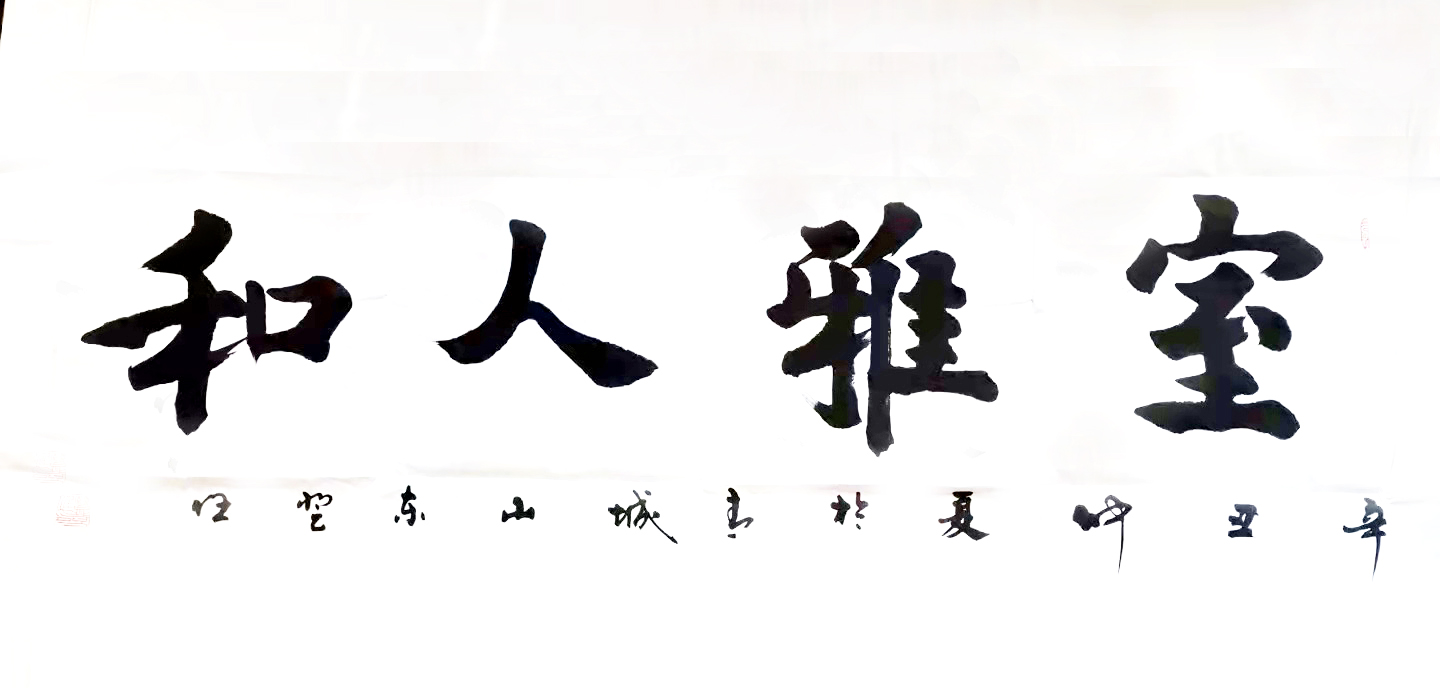 室雅人和
辛丑仲夏於青城山东